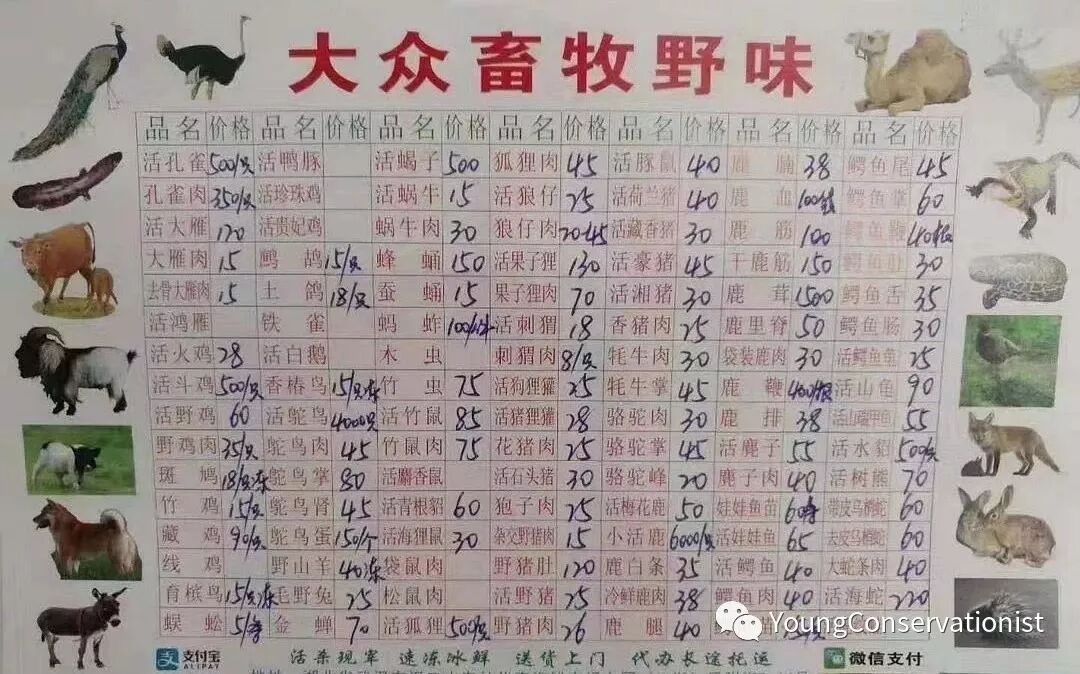 大众畜牧野味
品名 价格 品名 价格 品名 价格 品名 价格 品名 价格 品名 价格 品名 价格
活孔雀 500/只 活鸭豚 活蝎子 500 狐狸肉 45 活豚鼠 40 鹿 腩 38 鳄鱼尾 45
孔雀肉 350/只 活珍珠鸡 活蜗牛 15 活狼仔 25 活荷兰猪 40 鹿 血 鳄鱼掌 60
活大雁 120 活贵妃鸡 蜗牛肉 30 狼仔肉 20-45 活藏香猪 30 鹿 筋 100 鳄鱼鞭
大雁肉 15 鹧鸪 15/只 蜂 蛹 150 活果子狸 130 活豪猪 45 干鹿筋 150 鳄鱼肚 30
去骨大雁肉 15 土 鸽 18/只 蚕 蛹 15 果子狸肉 70 活湘猪 30 鹿 茸 1500 鳄鱼舌 35
活鸿雁 铁 雀 蚂 蚱 活刺猬 18 香猪肉 25 鹿里脊 50 鳄鱼肠 30
活火鸡 28 活白鹅 木 虫 刺猬肉 8/只 牦牛肉 30 袋装鹿肉 30 活鳄鱼龟 25
活斗鸡 500/只 香椿鸟 15/只冻 竹 虫 75 活狗狸獾 25 牦牛掌 45 鹿 鞭 活山龟 90
活野鸡 60 活鸵鸟 4000只 活竹鼠 85 活猪狸獾 28 骆驼肉 30 鹿 排 38 55
野鸡肉 35/只 鸵鸟肉 45 竹鼠肉 75 花猪肉 25 骆驼掌 45 活麂子 55 活水貂 500/只
斑 鸠 18/只冻 鸵鸟掌 80 活麝香鼠 活石头猪 30 骆驼峰 20 麂子肉 40 活树熊 70
竹 鸡 15/只 鸵鸟肾 45 活青根貂 60 狍子肉 25 活梅花鹿 50 娃娃鱼苗 60 60
藏 鸡 90/只 鸵鸟蛋 150/个 活海狸鼠 30 杂交野猪肉 15 小活鹿 6000/只 活娃娃鱼 65 60
线 鸡 野山羊 40冻 袋鼠肉 野猪肚 120 鹿白条 35 活鳄鱼 40 大蛇条肉 40
育槟鸟 15/只冻 毛野兔 25 松鼠肉 活野猪 25 冷鲜鹿肉 38 鳄鱼肉 40 活海蛇 220
蜈 蚣 金 蝉 70 活狐狸 500/只 野猪肉 26 鹿 腿 40
YoungConservationist
支付宝
ALIPAY
活杀现宰 速冻冰鲜 送货上门 代办长途托运
微信支付